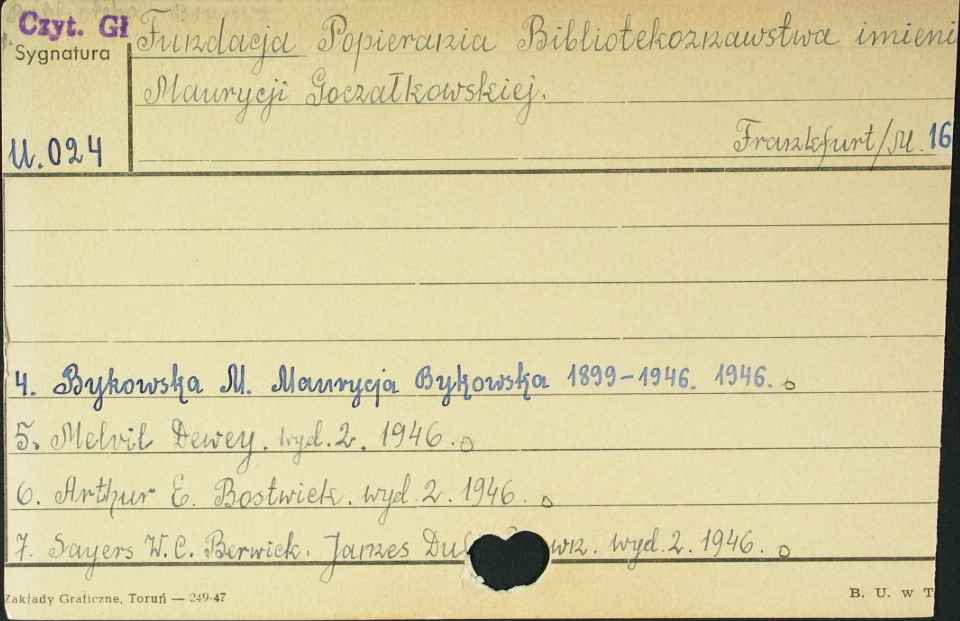 Czyt. Gł
Sygnatura
U.024
Fundacja Popierania Bibliotekoznawstwa imieni
Maurycji Goczałkowskiej.
Frankfurt/M. 16
4. Bykowska M. Maurycja Bykowska 1899-1946. 1946.
5. Melvil Dewey. wyd. 2. 1946.
6. Arthur E. Bostwick. wyd. 2. 1946.
7. Sayers W. C. Berwick. James wyd. 2. 1946.
Zakłady Graficzne, Toruń — 249-47
B. U. w T